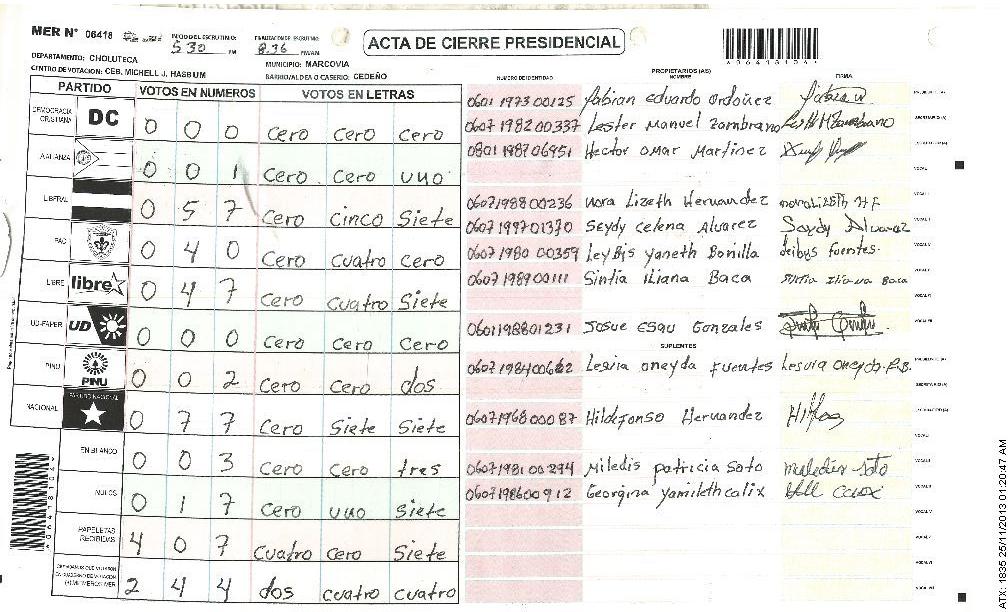 MER N° 06418 INICIO DEL ESCRUTINIO: 5 30 PM FINALIZACION DE ESCRUTINIO: 8.36 PM/AM
ACTA DE CIERRE PRESIDENCIAL
DEPARTAMENTO: CHOLUTECA MUNICIPIO: MARCOVIA
CENTRO DE VOTACION: CEB. MICHELL J. HASBUM BARRIO/ALDEA O CASERIO: CEDEÑO
NUMERO DE IDENTIDAD PROPIETARIOS (AS) NOMBRE FIRMA
PARTIDO VOTOS EN NUMEROS VOTOS EN LETRAS
DEMOCRACIA CRISTIANA DC 0 0 0 Cero Cero Cero
ALIANZA 0 0 1 Cero Cero uno
LIBERAL 0 5 7 Cero Cinco Siete
PAC 0 4 0 Cero Cuatro Cero
LIBRE libre 0 4 7 Cero Cuatro Siete
UD-FAPER UD 0 0 0 Cero Cero Cero
PINU PINU 0 0 2 Cero Cero dos
NACIONAL PARTIDO NACIONAL 0 7 7 Cero Siete Siete
EN BLANCO 0 0 3 Cero Cero tres
NULOS 0 1 7 Cero uno Siete
PAPELETAS RECIBIDAS 4 0 7 Cuatro Cero Siete
CIUDADANOS QUE VOTARON EN CUADERNO DE VOTACION (+) MIEMBROS MER 2 4 4 dos cuatro cuatro
0601 1973 00125 fabian eduardo Ordoñez
0607 1982 00337 Lester Manuel Zambrano
0801 1987 06951 Hector omar Martinez
0607 1988 00236 nora Lizeth Hernandez
0607 1997 01370 Seydy Celena Alvarez Seydy Alvarez
0607 1980 00359 Leybis yaneth Bonilla deibys fuentes
0607 1989 00111 Sintia Iliana Baca Sintia Iliana Baca
0601 1988 01231 Josue Esau Gonzales
SUPLENTES
0607 1984 00622 Lesvia oneyda Fuentes Lesvia Oneyda F.B.
0607 1968 00087 Hildefonso Hernandez
0607 1981 00294 Miledis patricia Soto
0607 1986 00912 Georgina yamileth calix
ATX: 1835 25/11/2013 01:20:47 AM